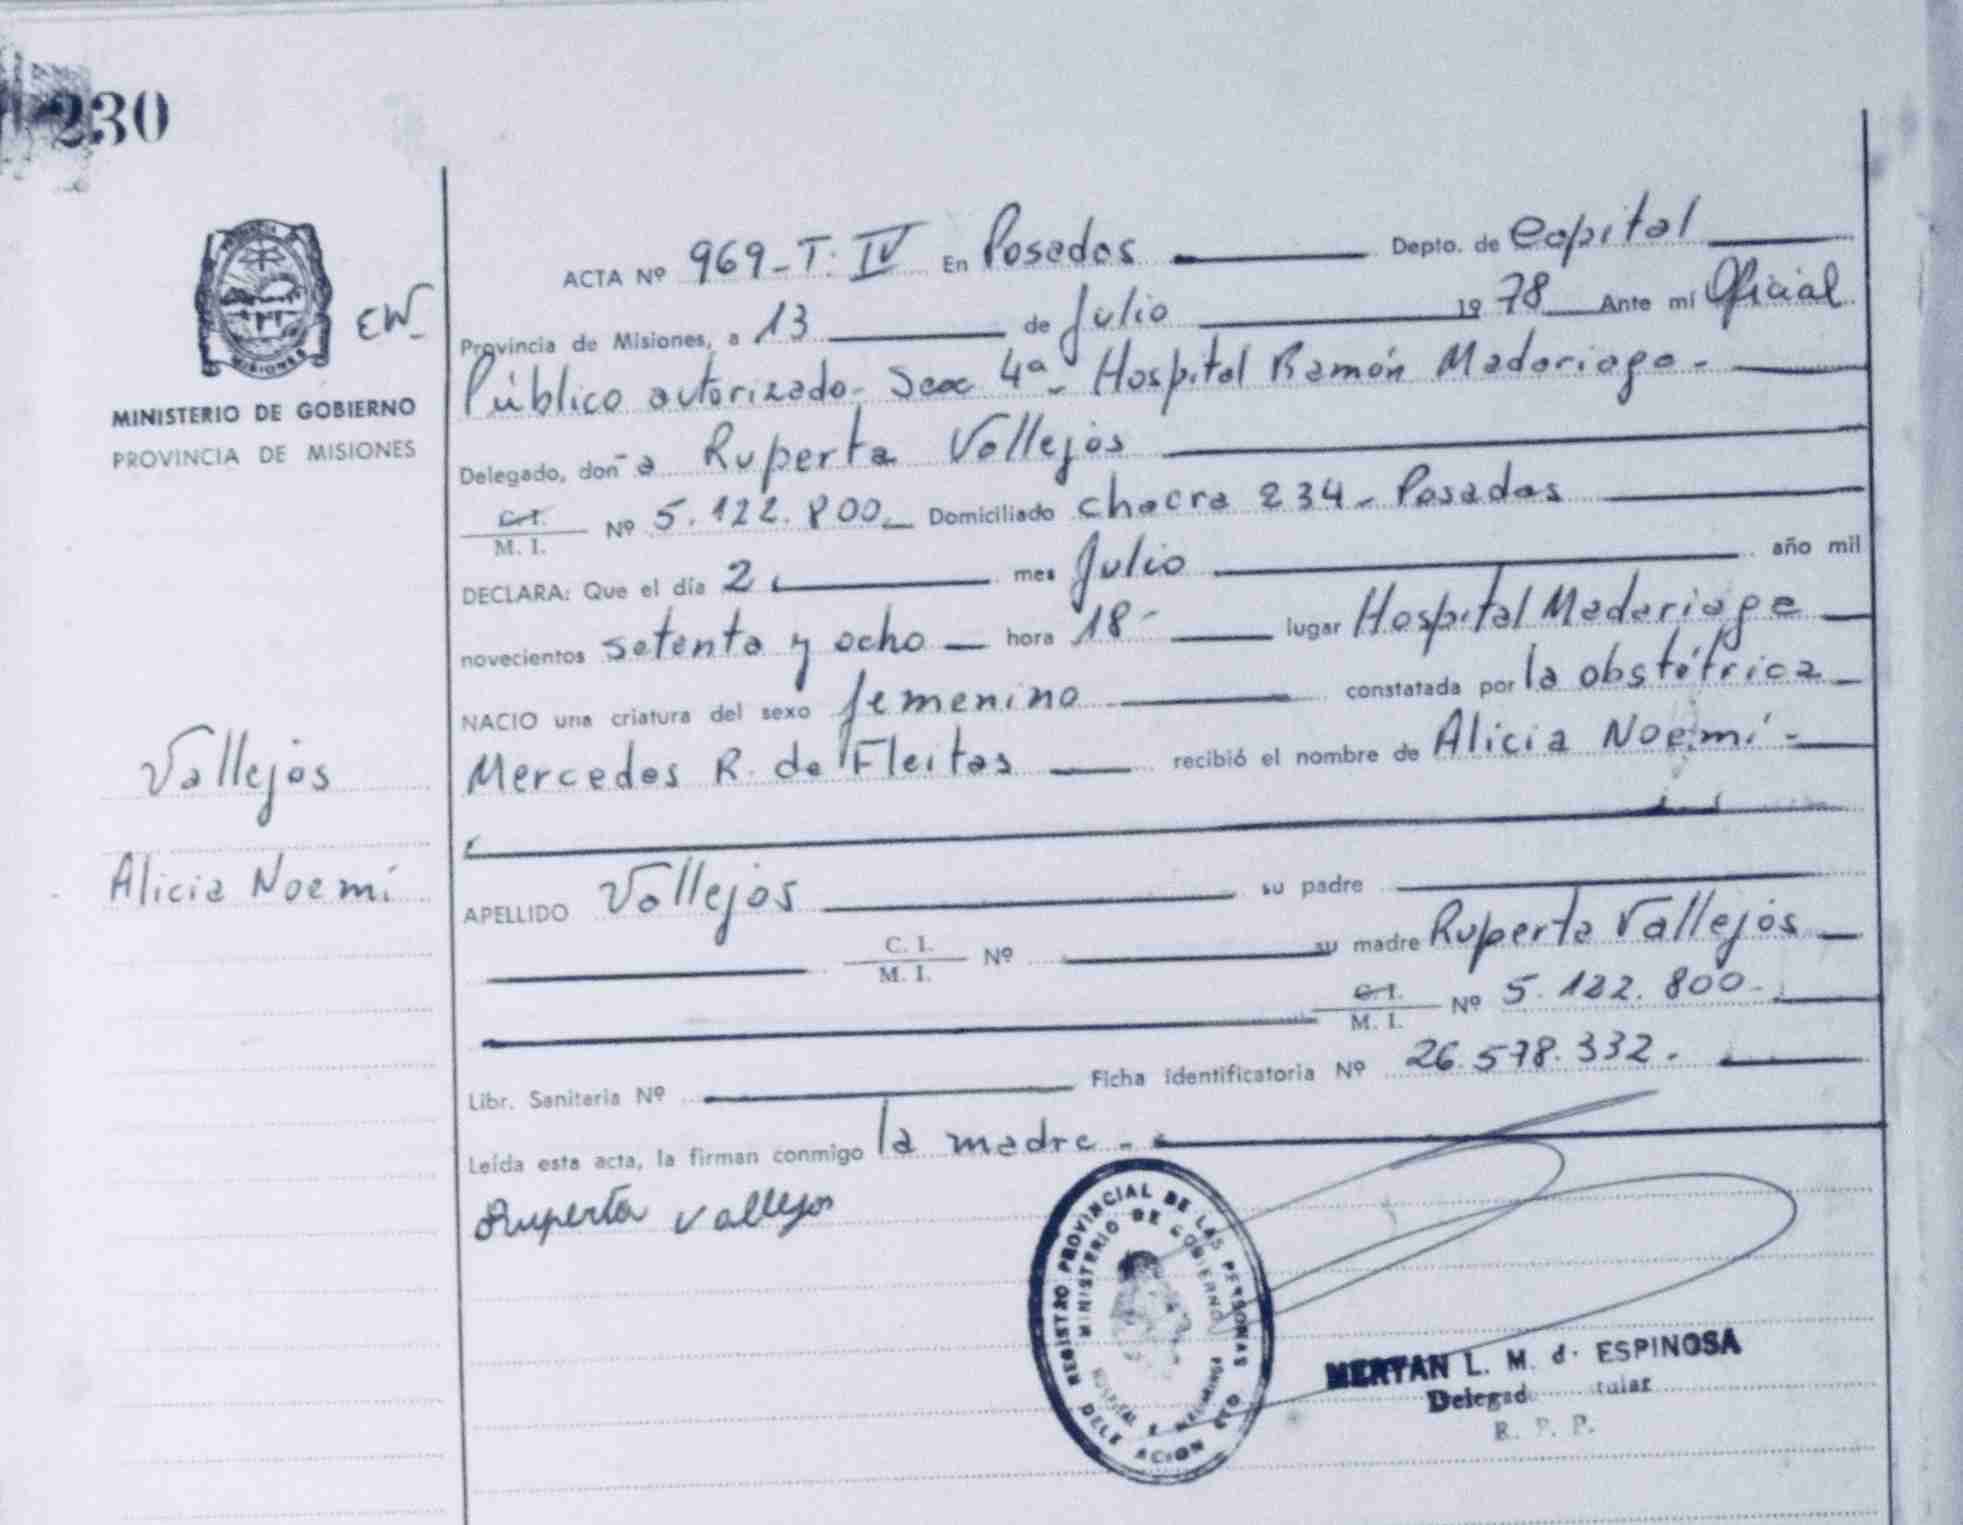 230
MINISTERIO DE GOBIERNO
PROVINCIA DE MISIONES
ACTA Nº 969-T. IV En Posadas Depto. de Capital
Provincia de Misiones, a 13 de Julio 1978 Ante mí Oficial
Público autorizado- Secc 4ª- Hospital Ramón Madariaga-
Delegado, don-a Ruperta Vallejos
C. I. / M. I. Nº 5.122.800- Domiciliado chacra 234- Posadas
DECLARA: Que el día 2 mes Julio año mil
novecientos setenta y ocho hora 18- lugar Hospital Madariaga
NACIO una criatura del sexo femenino constatada por la obstétrica
Mercedes R. de Fleitas recibió el nombre de Alicia Noemí-
Vallejos
Alicia Noemí
APELLIDO Vallejos su padre
C. I. / M. I. Nº su madre Ruperta Vallejos
C. I. / M. I. Nº 5.122.800-
Libr. Sanitaria Nº Ficha identificatoria Nº 26.578.332.
Leída esta acta, la firman conmigo la madre-
Ruperta Vallejos
REGISTRO PROVINCIAL DE LAS PERSONAS
MINISTERIO DE GOBIERNO
L. M. d. ESPINOSA
R. P. P.